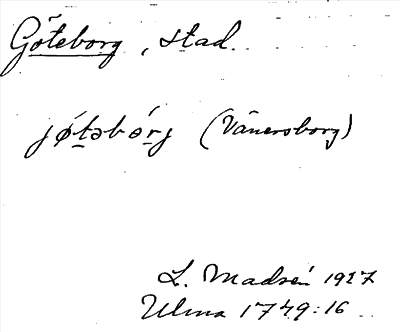 Göteborg, stad.
jǿt̲əbór̲j (Vänersborg)
L. Madsén 1927
Ulma 1749:16